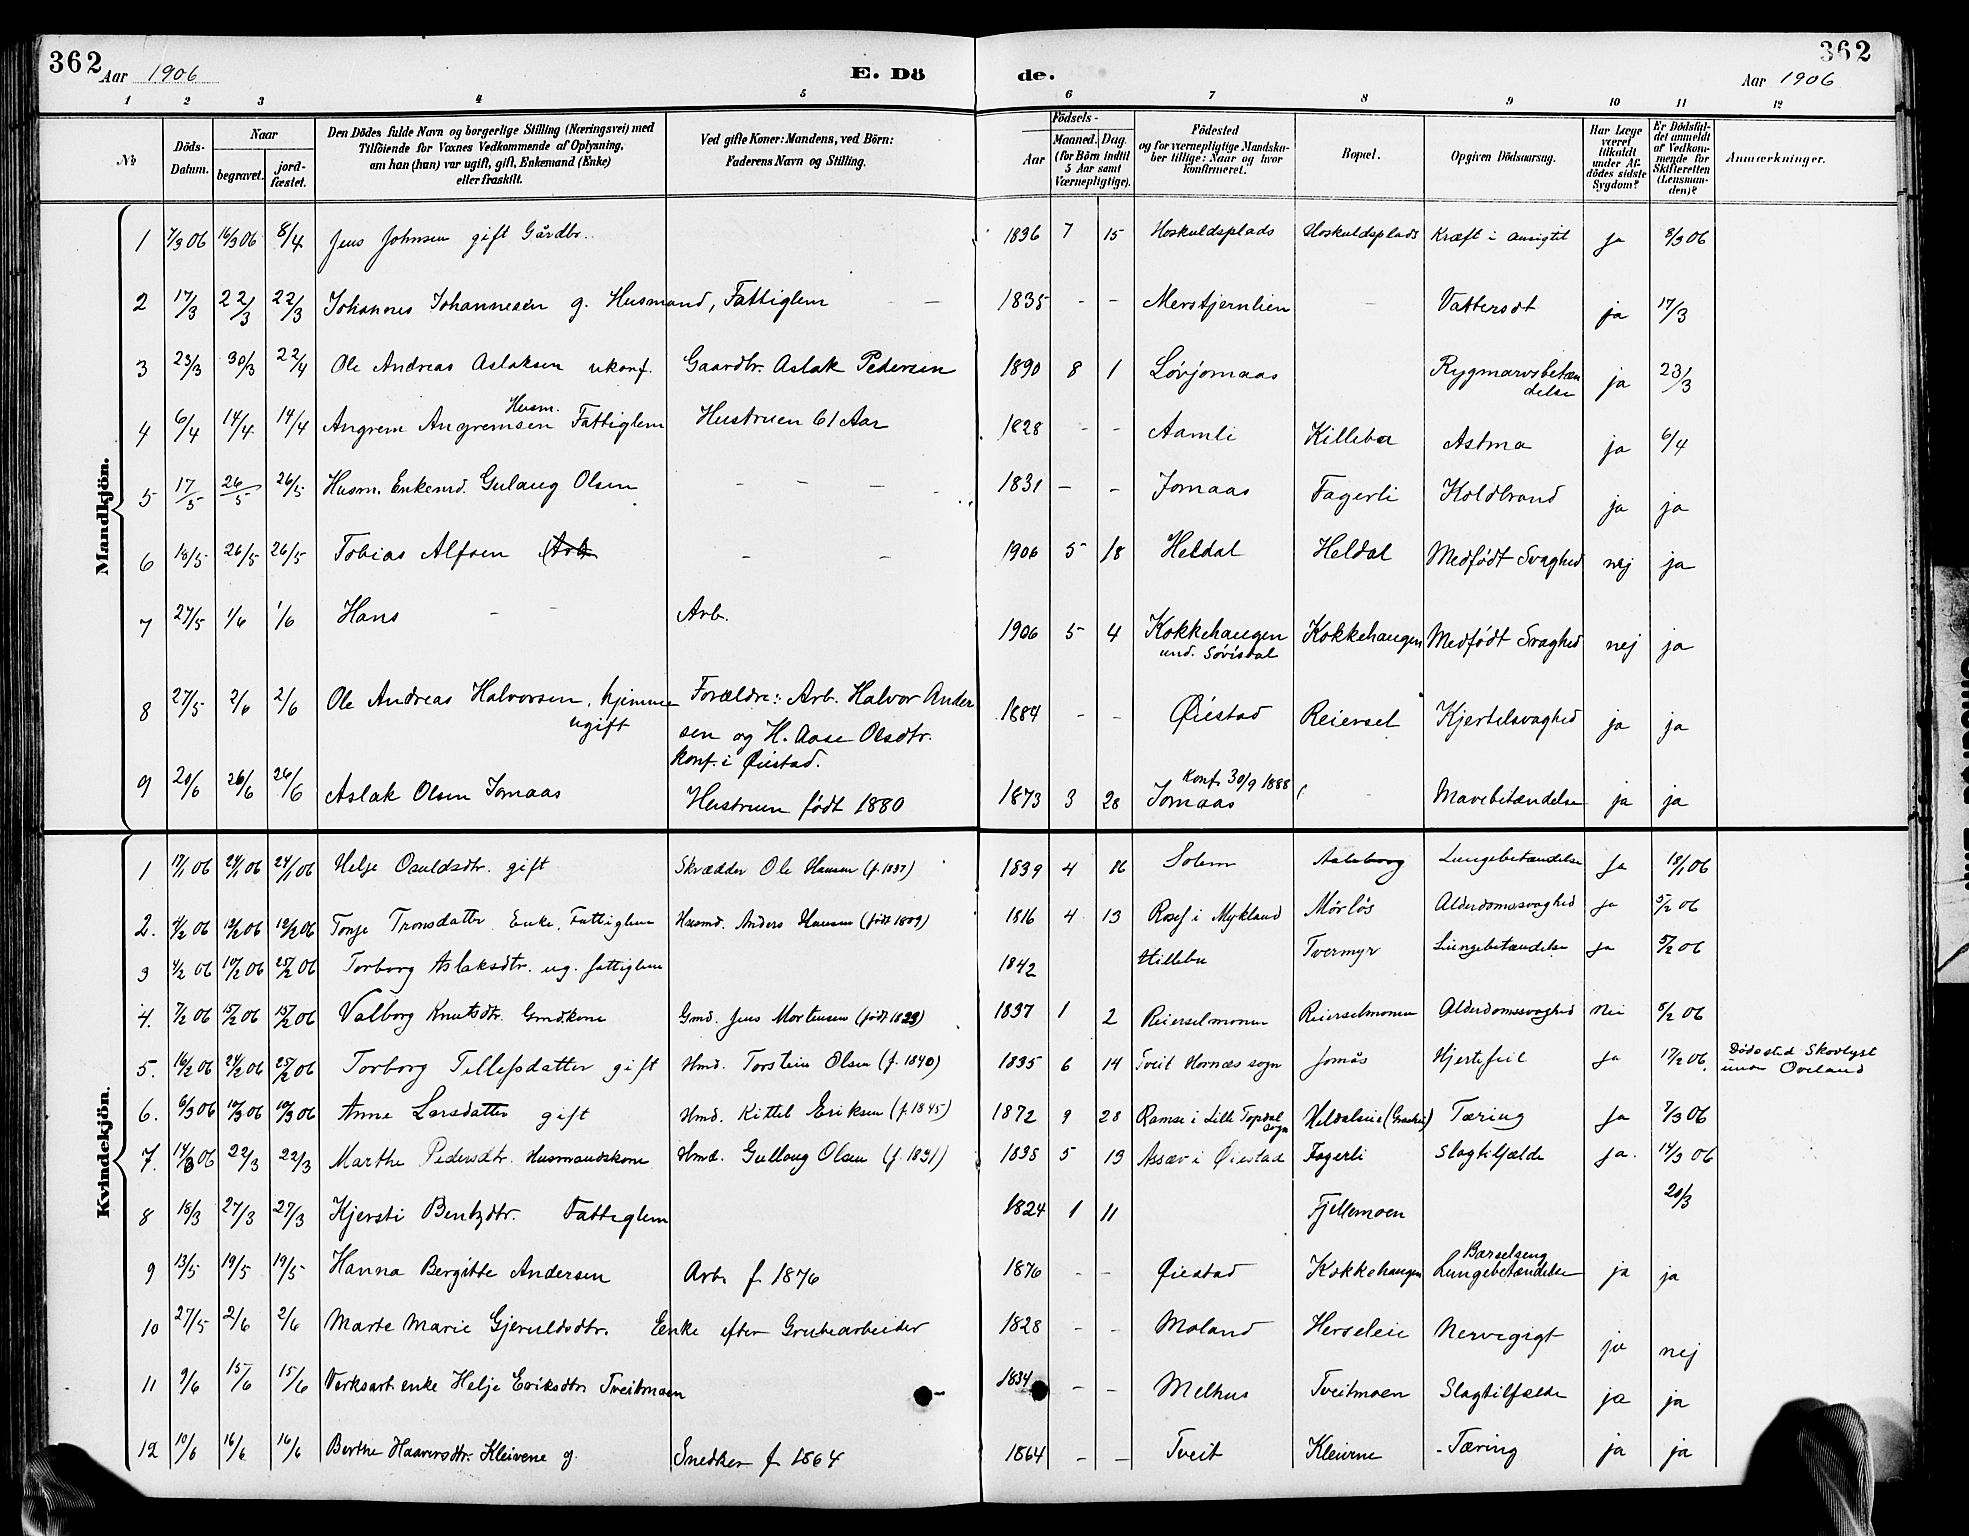 362 Aar 1906 E. Dö de. Aar 1906 362
1 2 3 4 5 6 7 8 9 10 11 12
No Döds-Datum. Naar begravet. jord-fæstet. Den Dödes fulde Navn og borgerlige Stilling (Næringsvei) med Tilföiende for Voxnes Vedkommende af Oplysning, om han (hun) var ugift, gift, Enkemand (Enke) eller fraskilt. Ved gifte Koner: Mandens, ved Börn: Faderens Navn og Stilling. Födsels- Aar Maaned. Dag. (for Börn indtil 5 Aar samt Værnepligtige). Födested og for værnepligtige Mandska-ber tillige: Naar og hvor konfirmeret. Bopæl. Opgiven Dödsaarsag. Har Læge været tilkaldt under Af-dödes sidste Sygdom? Er Dödsfal-det anmeldt af Vedkom-mende for Skifteretten (Lensman-den)? Anmærkninger.
Mandkjön.
1 7/3 06 16/3 06 8/4 Jens Johnsen gift Gårdbr. 1836 7 15 Hoskuldsplads Hoskuldsplads Kræft i ansigtet ja 8/3 06
2 17/3 22/3 22/3 Johannes Johannesen g. Husmand, Fattiglem – – 1835 - - Merstjernlien – Vattersot ja 17/3
3 23/3 30/3 22/4 Ole Andreas Aslaksen ukonf. Gaardbr. Aslak Pedersen 1890 8 1 Løvjomaas Rygmarvsbetæn
delse ja 23/3
4 6/4 14/4 14/4 Angrem Angremsen Husm. Fattiglem Hustruen 61 Aar 1828 - - Aamli Killebu Astma ja 6/4
5 17/5 26/5 26/5 Husm. Enkemd. Gulaug Olsen - - - - 1831 - - Jomaas Fagerli Koldbrand ja ja
6 18/5 26/5 26/5 Tobias Alfsen (Arb - - 1906 5 18 Heldal Heldal Medfødt Svaghed nej ja
7 27/5 1/6 1/6 Hans - - Arb. 1906 5 4 Kokkehaugen
und. Søvisdal Kokkehaugen Medfødt Svaghed nej ja
8 27/5 2/6 2/6 Ole Andreas Halvorsen, hjemme
ugift Forældre: Arb. Halvor Ander
sen og H. Aase Olsdtr.
konf. i Øiestad. 1884 - - Øiestad Reiersel Kjertelsvaghed ja ja
9 20/6 26/6 26/6 Aslak Olsen Jomaas Hustruen født 1880 1873 3 28 Konf. 30/9 1888
Jomaas - Mavebetændelse ja ja
Kvindekjön.
1 17/1 06 24/1 06 24/1 06 Helje Osuldsdtr. gift Skrædder Ole Hansen (f. 1837) 1839 4 16 Solem Aalsborg Lungebetændelse Ja 18/1 06
2. 4/2 06 12/2 06 12/2 06 Tonje Tronsdatter Enke, Fattiglem Husmd. Anders Hansen (født 1809) 1816 4 13 Rosef i Mykland Mørløs Alderdomssvaghed ja 5/2 06
3 4/2 06 10/2 06 25/2 06 Torborg Aslaksdtr. ug. fattiglem 1842 Hillebu Tvermyr Lungebetændelse ja 5/2 06
4. 7/2 06 15/2 06 15/2 06 Valborg Knutsdtr. Gmdkone Gmd. Jens Mortensen (født 1833) 1837 1 2 Reierselmonen Reierselmonen Alderdomssvaghed Nei 8/2 06
5. 16/2 06 24/2 06 25/2 06 Torborg Tellefsdatter gift Hmd. Torstein Olsen (f. 1840) 1835 6 14 Tveit Hornæs sogn Jomås Hjertefeil Ja 17/2 06. Dødssted Skovlyst
under Oveland
6. 6/3 06 10/3 06 10/3 06 Anne Larsdatter gift Hmd. Kittel Eriksen (f. 1845) 1872 9 28 Ramse i Lille Topdal
sogn Heldalseie Tæring Ja 7/3 06
7. 14/3 06 22/3 22/3 Marthe Pedersdtr. Husmandskone Hmd. Gullaug Olsen (f. 1831) 1838 5 13 Assæv i Øiestad Fagerli Slagtilfælde ja. 14/3 06
8 18/3 27/3 27/3 Kjersti Bentzdtr. Fattiglem 1824 1 11 Fjellemoen 20/3
9 13/5 19/5 19/5 Hanna Bergitte Andersen Arb. f. 1876 1876 - - Øiestad Kokkehaugen Barselseng
Lungebetændelse ja ja
10 27/5 2/6 2/6 Marte Marie Gjeruldsdtr. Enke efter Grubearbeider 1828 - - Moland Herseleie Nervegigt ja nej
11 9/6 15/6 15/6 Verksarb.enke Helje Eriksdtr. Tveitmoen - 1834 - - Melhus Tveitmoen Slagtilfælde ja ja
12 10/6 16/6 16/6 Berthe Haaversdtr. Kleivene g. Snedker f. 1864 1864 - - Tveit Kleivene Tæring ja ja